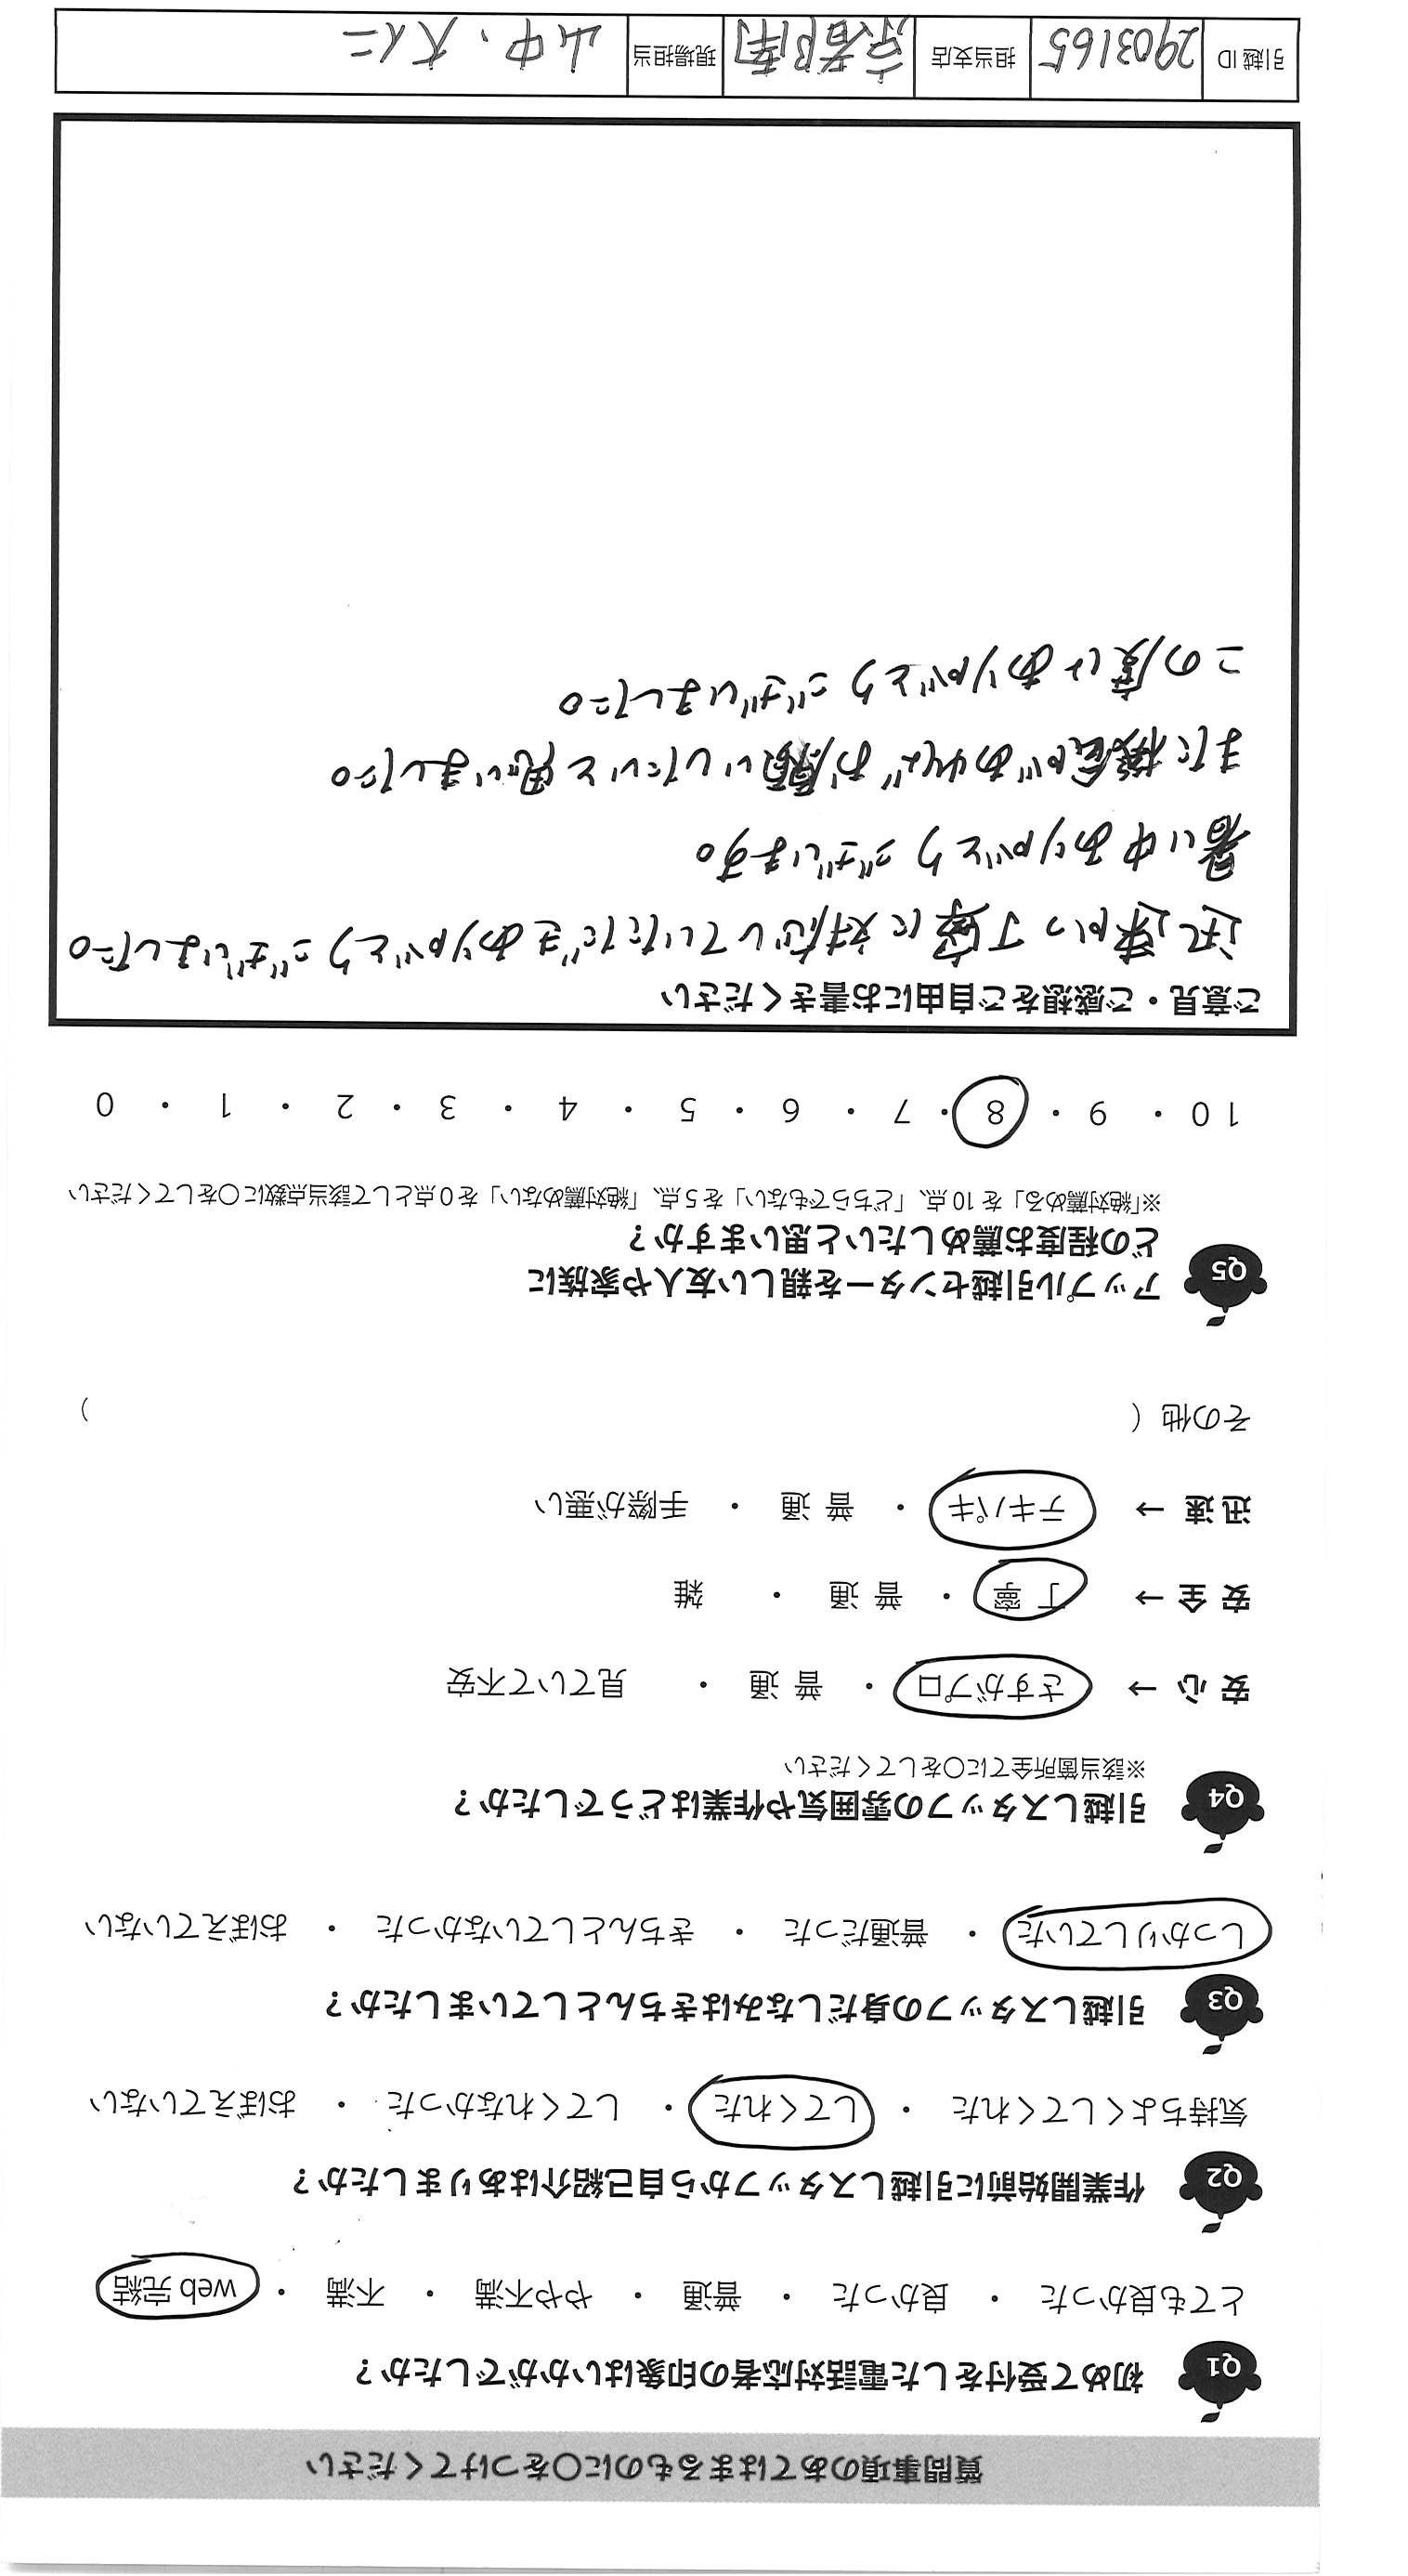 質問事項のあてはまるものに○をつけてください
Q1 初めて受付をした電話対応者の印象はいかがでしたか？
とても良かった ・ 良かった ・ 普通 ・ やや不満 ・ 不満 ・ web 完結
Q2 作業開始前に引越しスタッフから自己紹介はありましたか？
気持ちよくしてくれた ・ してくれた ・ してくれなかった ・ おぼえていない
Q3 引越しスタッフの身だしなみはきちんとしていましたか？
しっかりしていた ・ 普通だった ・ きちんとしていなかった ・ おぼえていない
Q4 引越しスタッフの雰囲気や作業はどうでしたか？
※該当箇所全てに○をしてください
安 心 → さすがプロ ・ 普 通 ・ 見ていて不安
安 全 → 丁 寧 ・ 普 通 ・ 雑
迅 速 → テキパキ ・ 普 通 ・ 手際が悪い
その他（ ）
Q5 アップル引越センターを親しい友人や家族に
どの程度お薦めしたいと思いますか？
※「絶対薦める」を 10 点、「どちらでもない」を 5 点、「絶対薦めない」を 0 点として該当点数に○をしてください
10 ・ 9 ・ 8 ・ 7 ・ 6 ・ 5 ・ 4 ・ 3 ・ 2 ・ 1 ・ 0
ご意見・ご感想をご自由にお書きください
迅速かつ丁寧に対応していただきありがとうございました。
暑い中ありがとうございます。
また機会があればお願いしたいと思いました。
この度はありがとうございました。
引越 ID 2903165 担当支店 京都南 現場担当 山中、大仁